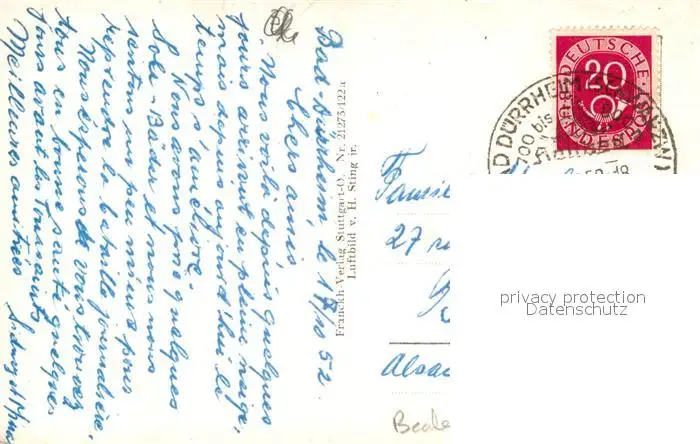 Bad-Dürrheim, le 17/10 52.
Chers amis,
Nous voilà depuis quelques
jours arrivés en pleine neige,
mais depuis aujourd'hui le
temps s'améliore.
Nous avons pris quelques
Sole-Bäder et nous nous
sentons un peu mieux pour
reprendre la bataille journalière.
Nous espérons de vous trouver
tous en bonne santé quelques
jours avant la Toussaint.
Meilleures amitiés
Franckh-Verlag Stuttgart-O. Nr. 21273/122a
Luftbild v. H. Sting jr.
DEUTSCHE
BUNDESPOST
20
BAD DÜRRHEIM
700 bis
52-18
Famille
27
Alsac
privacy protection
Datenschutz